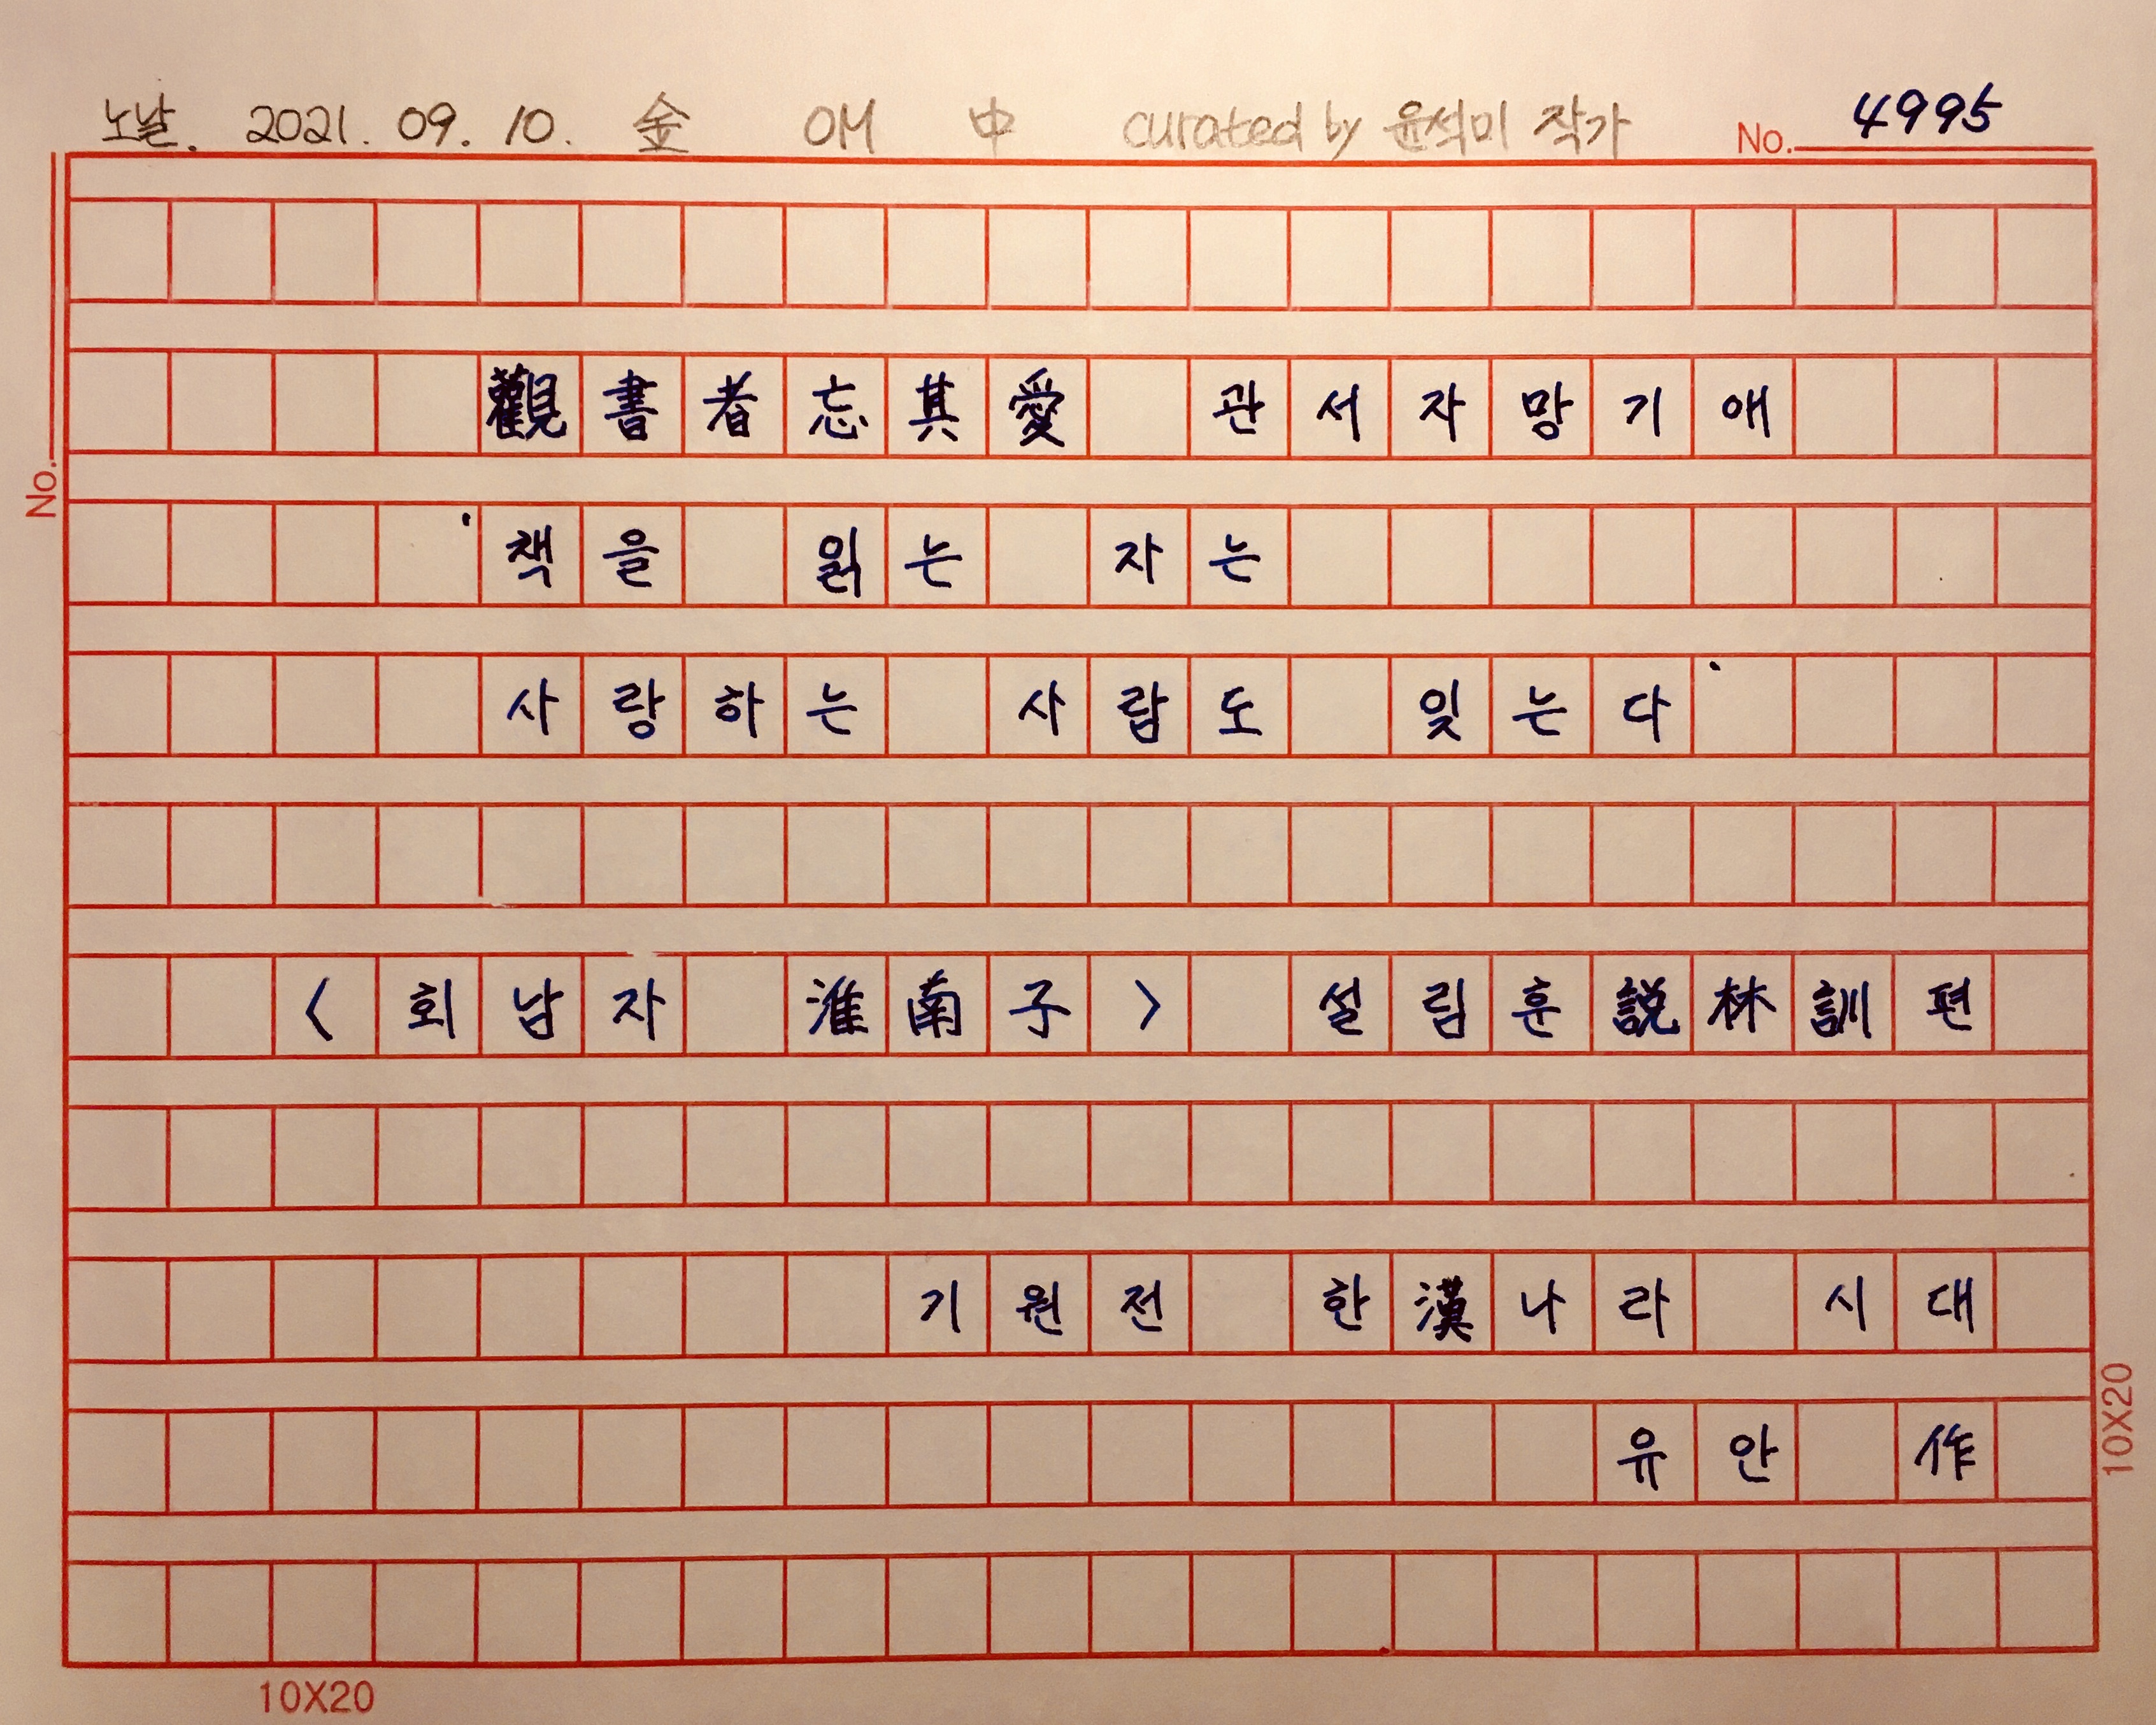 노날. 2021. 09. 10. 金 OM 中 curated by 윤석미 작가 No. 4995
觀書者忘其愛 관서자망기애
No.
'책을 읽는 자는
사랑하는 사람도 잊는다'
<회남자 淮南子> 설림훈說林訓편
기원전 한漢나라 시대
유안 作
10X20
10X20